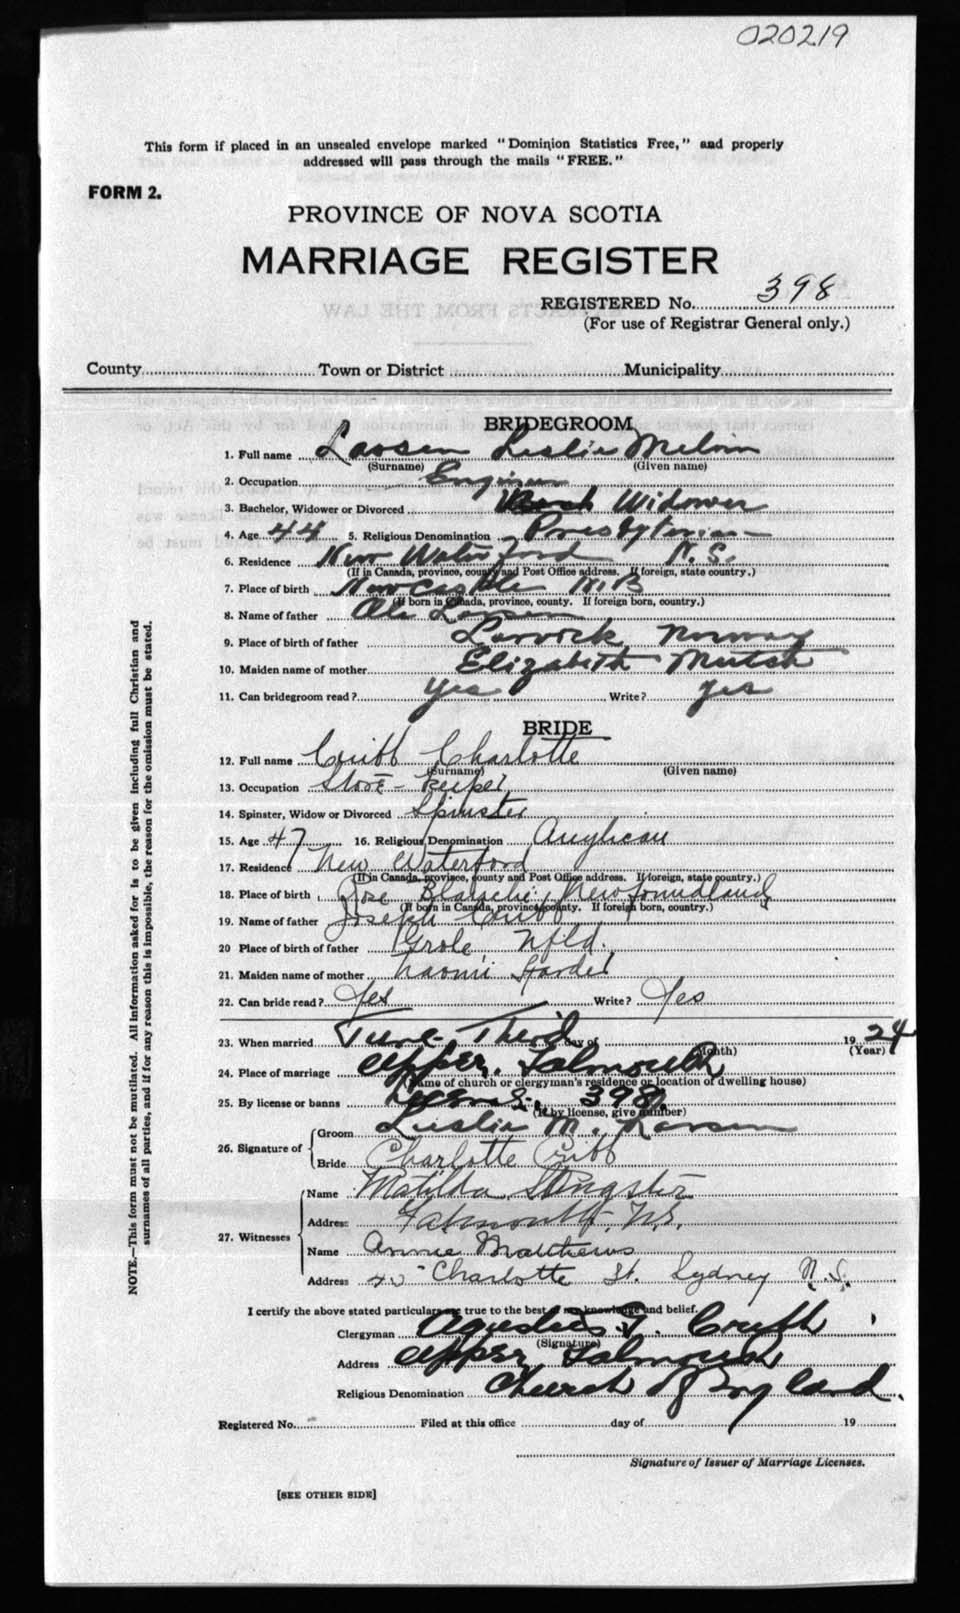 020219
This form if placed in an unsealed envelope marked "Dominion Statistics Free," and properly
addressed will pass through the mails "FREE."
FORM 2.
PROVINCE OF NOVA SCOTIA
MARRIAGE REGISTER
REGISTERED No. 398
(For use of Registrar General only.)
County Town or District Municipality
BRIDEGROOM
1. Full name Larsen Leslie Melvin
(Surname) (Given name)
2. Occupation Engineer
3. Bachelor, Widower or Divorced Widower
4. Age 44 5. Religious Denomination Presbyterian
6. Residence New Waterford N.S.
(If in Canada, province, county and Post Office address. If foreign, state country.)
7. Place of birth Newcastle N.B
(If born in Canada, province, county. If foreign born, country.)
8. Name of father Ole Larsen
9. Place of birth of father Larvick Norway
10. Maiden name of mother Elizabeth Mutch
11. Can bridegroom read? Yes Write? yes
BRIDE
12. Full name Cribb Charlotte
(Surname) (Given name)
13. Occupation Store-keeper
14. Spinster, Widow or Divorced Spinster
15. Age 47 16. Religious Denomination Anglican
17. Residence New Waterford
(If in Canada, province, county and Post Office address. If foreign, state country.)
18. Place of birth Rose Blanche, Newfoundland
(If born in Canada, province, county. If foreign born, country.)
19. Name of father Joseph Cribb
20 Place of birth of father Grole, Nfld.
21. Maiden name of mother Naomi
22. Can bride read? Yes Write? Yes
23. When married June Third day of 1924
(Month) (Year)
24. Place of marriage Upper Falmouth
(Name of church or clergyman's residence or location of dwelling house)
25. By license or banns License 398
(If by license, give number)
26. Signature of Groom Leslie M. Larsen
Bride Charlotte Cribb
27. Witnesses Name Matilda
Address Falmouth, N.S.
Name Annie Matthews
Address 40 Charlotte St. Sydney N.S.
I certify the above stated particulars are true to the best of my knowledge and belief.
Clergyman Cribb
(Signature)
Address Upper Falmouth
Religious Denomination Church of England.
Registered No. Filed at this office day of 19
Signature of Issuer of Marriage Licenses.
[SEE OTHER SIDE]
NOTE.—This form must not be mutilated. All information asked for is to be given including full Christian and
surnames of all parties, and if for any reason this is impossible, the reason for the omission must be stated.